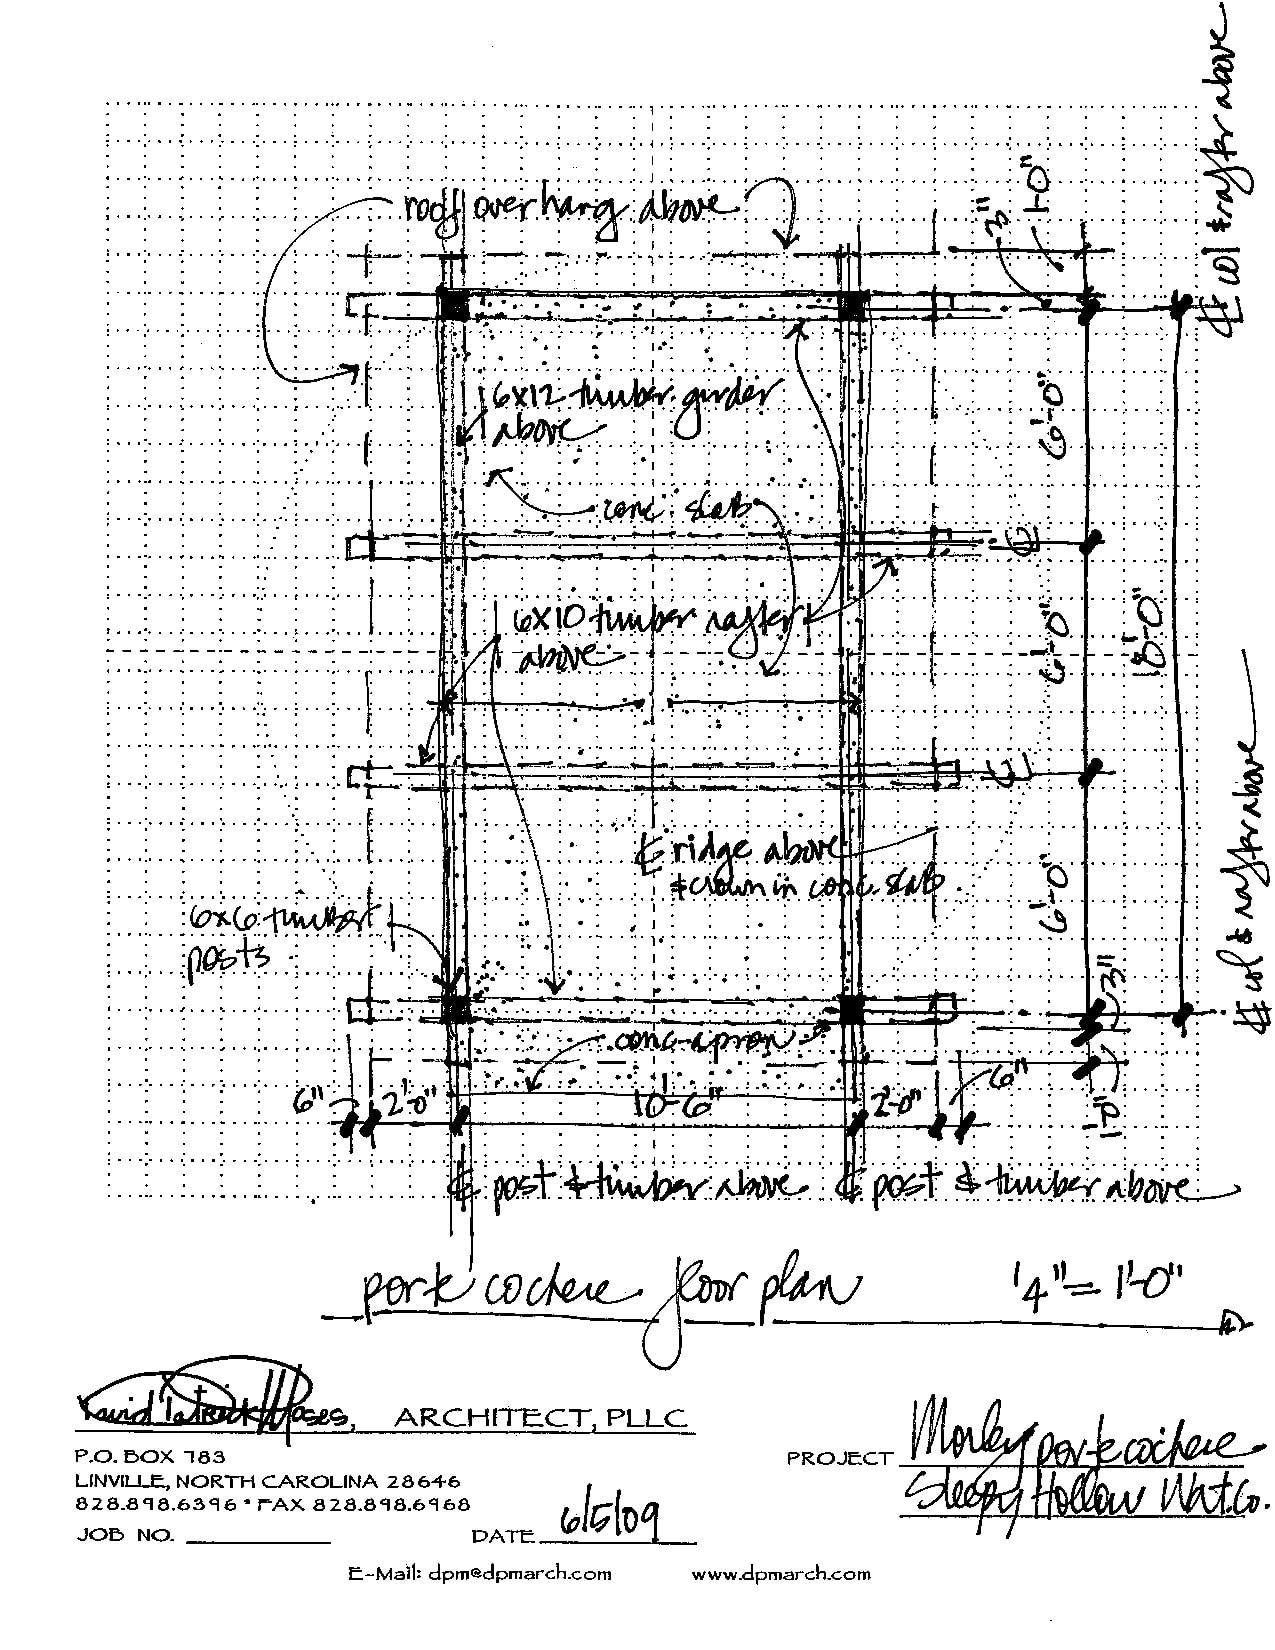 roof overhang above
3"
1'-0"
℄ col & rafter above
6x12 timber girder
above
6'-0"
conc. slab
℄
6x10 timber rafter
above
6'-0"
18'-0"
℄
℄ ridge above
& crown in conc. slab
6'-0"
6x6 timber
posts
℄ col & rafter above
3"
conc. apron
6"
2'-0"
10'-6"
2'-0"
6"
1'-0"
℄ post & timber above
℄ post & timber above
porte cochere floor plan
1/4" = 1'-0"
David Patrick Moses, ARCHITECT, PLLC
P.O. BOX 783
LINVILLE, NORTH CAROLINA 28646
828.898.6396 * FAX 828.898.6968
JOB NO.
DATE 6/5/09
PROJECT Morley porte cochere
Sleepy Hollow Wat. Co.
E-Mail: dpm@dpmarch.com
www.dpmarch.com